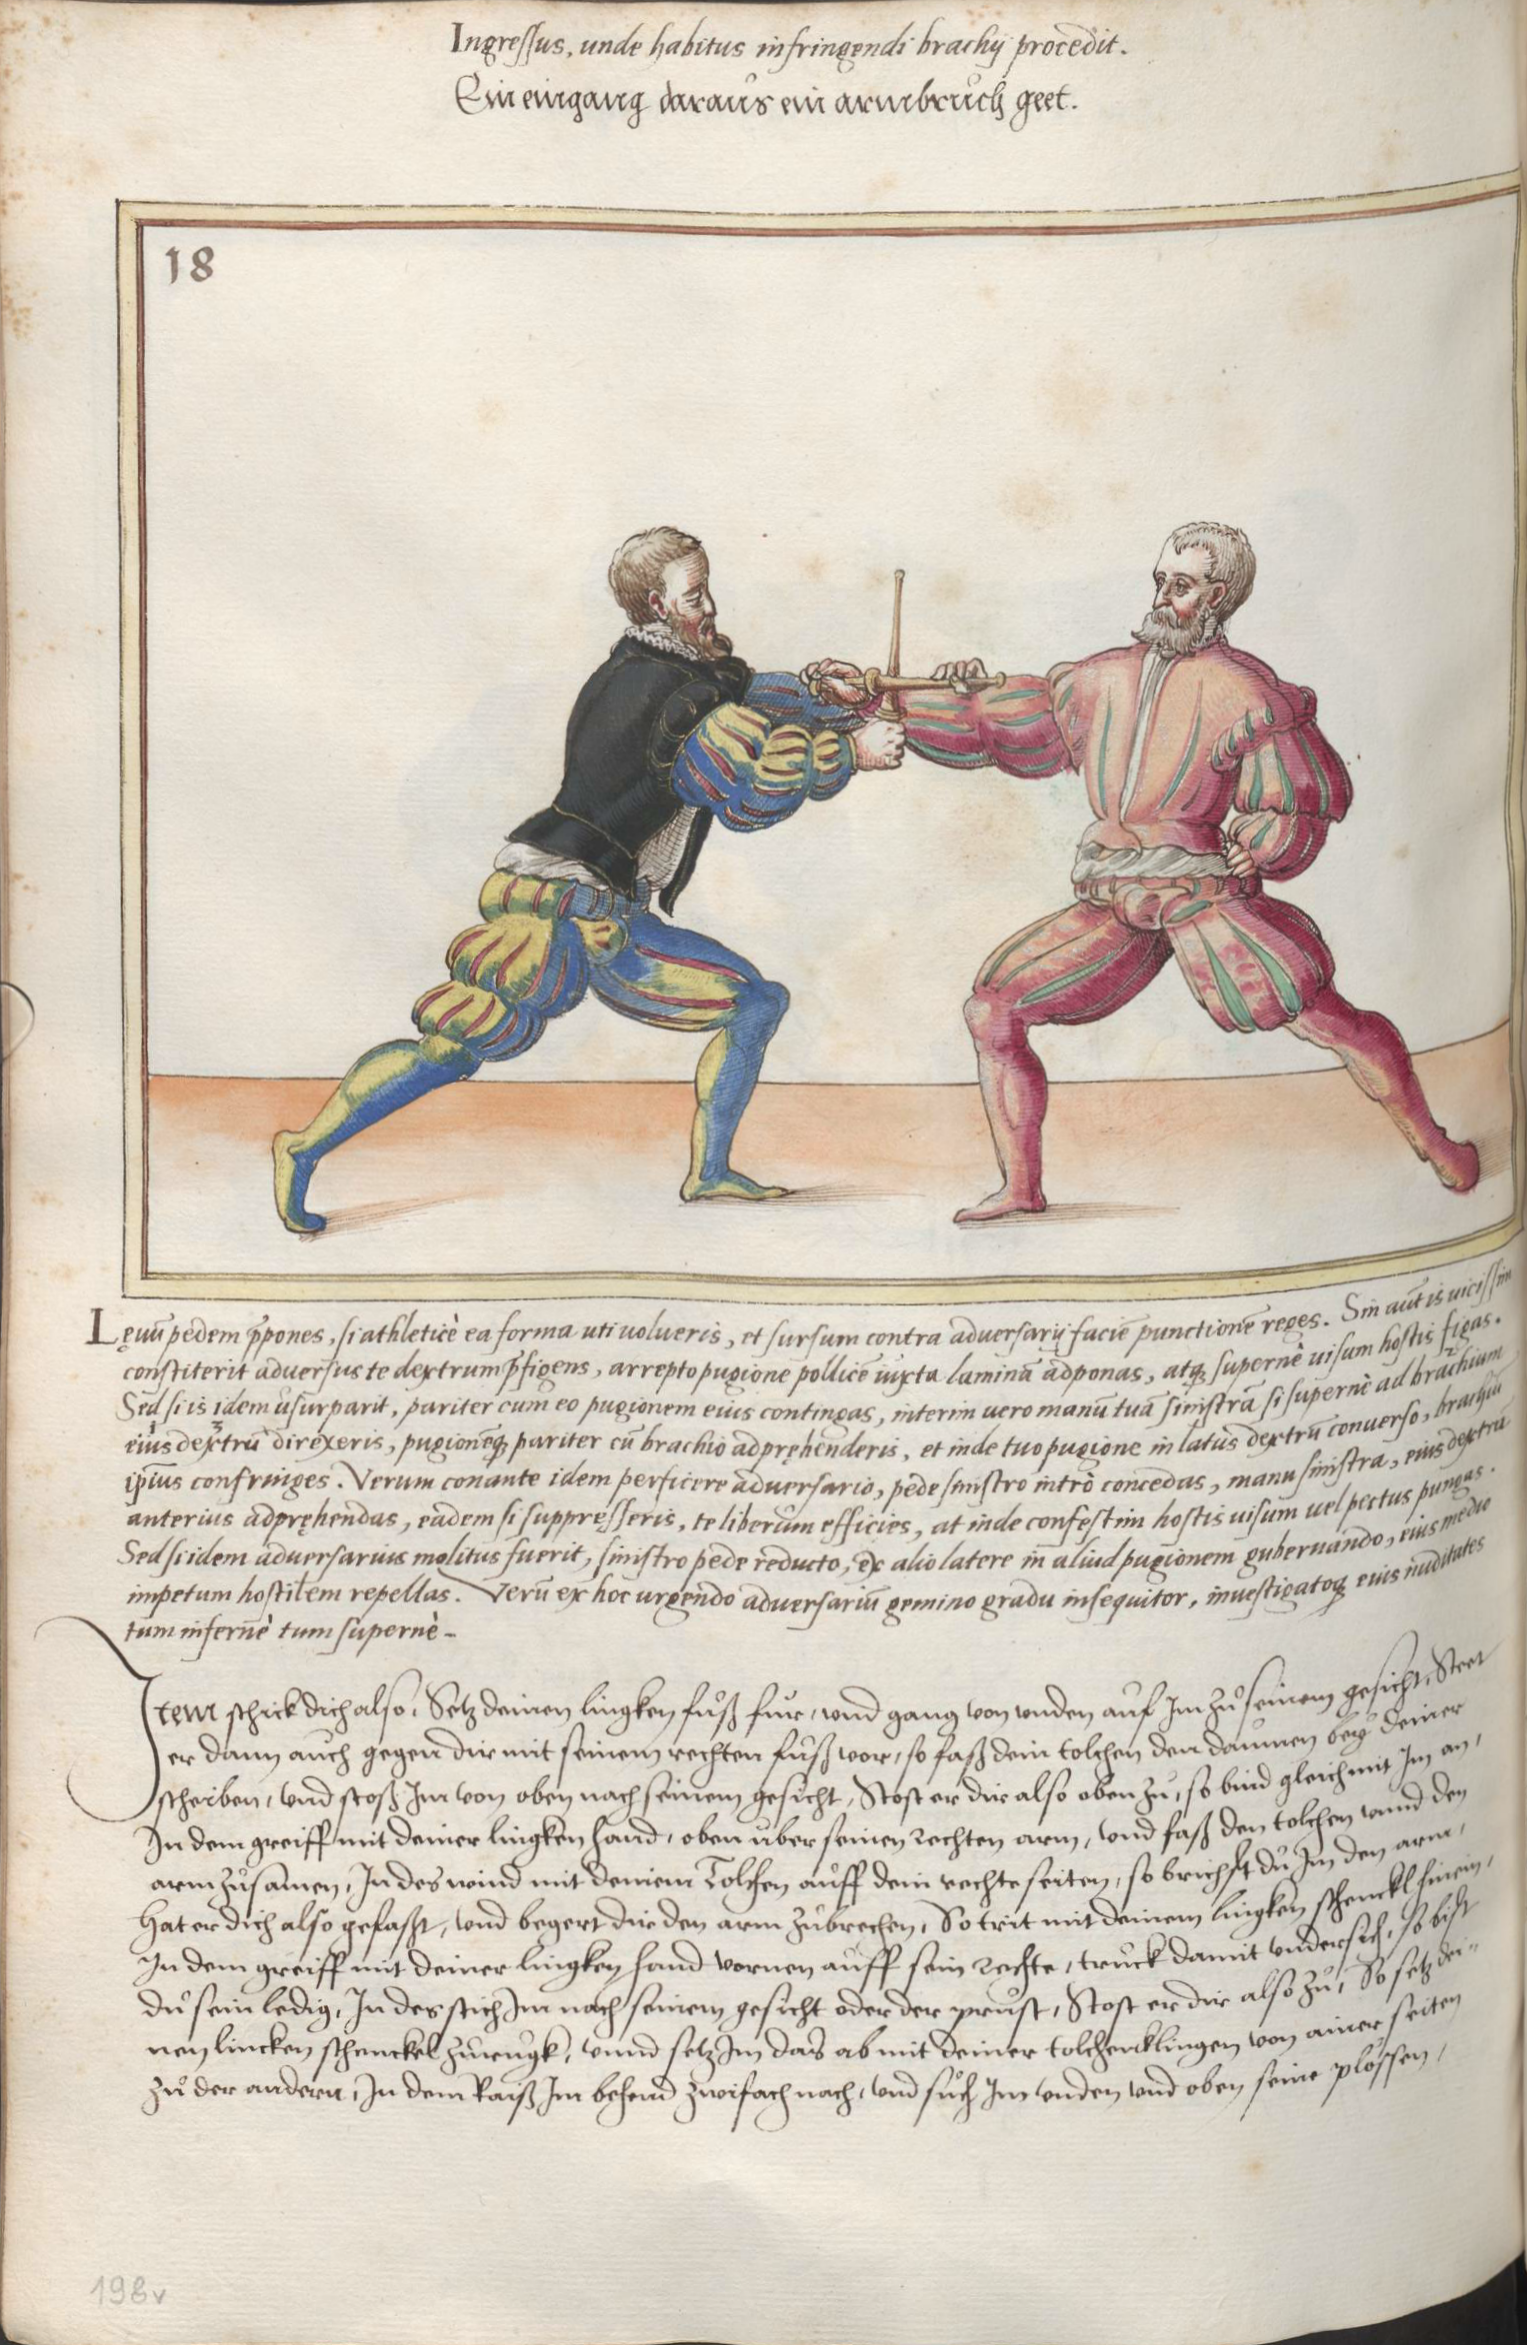 Ingressus, unde habitus infringendi brachij procedit.
Ein eingang daraus ein armbruch geet.
18
Lęuū pedem p̄pones, si athleticè ea forma uti uolueris, et sursum contra aduersarij faciē punctionē reges. Sin aūt is uicissim
constiterit aduersus te dextrum p̄figens, arrepto pugione pollicē iuxta laminā adponas, atq supernè uisum hostis figas.
Sed si is idem usurparit, pariter cum eo pugionem eius contingas, interim uero manū tuā sinistrā si supernè ad brachium
eius dextrū direxeris, pugionēq pariter cū brachio adpręhenderis, et inde tuo pugione in latus dextrū conuerso, brachiū
ip̄ius confringes. Verum conante idem perficere aduersario, pede sinistro intrò concedas, manu sinistra, eius dextrā
anterius adpręhendas, eadem si suppresseris, te liberum efficies, at inde confestim hostis uisum uel pectus pungas.
Sed si idem aduersarius molitus fuerit, sinistro pede reducto, ex alio latere in aliud pugionem gubernando, eius medio
impetum hostilem repellas. Verū ex hoc urgendo aduersariū gemino gradu insequitor, inuestigatoq eius nuditates
tum infernè tum supernè -
Item schick dich also, Setz deinen lingken fuß fur, vnd gang von vnden auf Im zu seinem gesicht, Steet
er dann auch gegen dir mit seinem rechten fuß vor, so faß dein tolchen den daumen bey deiner
scheiben, vnd stoß Im von oben nach seinem gesicht, Stost er dir also oben zu, so bind gleich mit Im an,
In dem greiff mit deiner lingken hand, oben uber seinen rechten arm, vnd faß den tolchen vnnd den
arm zusamen, In des wind mit deinem Tolchen auff dein rechte seiten, so brichst du Im den arm,
Hat er dich also gefaßt, vnd begert dir den arm zubrechen, So trit mit deinem lingken schenckl hinein,
In dem greiff mit deiner lingken hand vornen auff sein rechte, truck damit vndersich, so bist
du sein ledig, In des stich Im nach seinem gesicht oder der prust, Stost er dir also zu, So setz dei=
nen lincken schenckel zurugk, vnnd setz Im das ab mit deiner tolchenklingen von ainer seiten
zu der andern, In dem Raiß Im behend zwifach nach, vnd such Im vnden vnd oben seine plossen,
198v